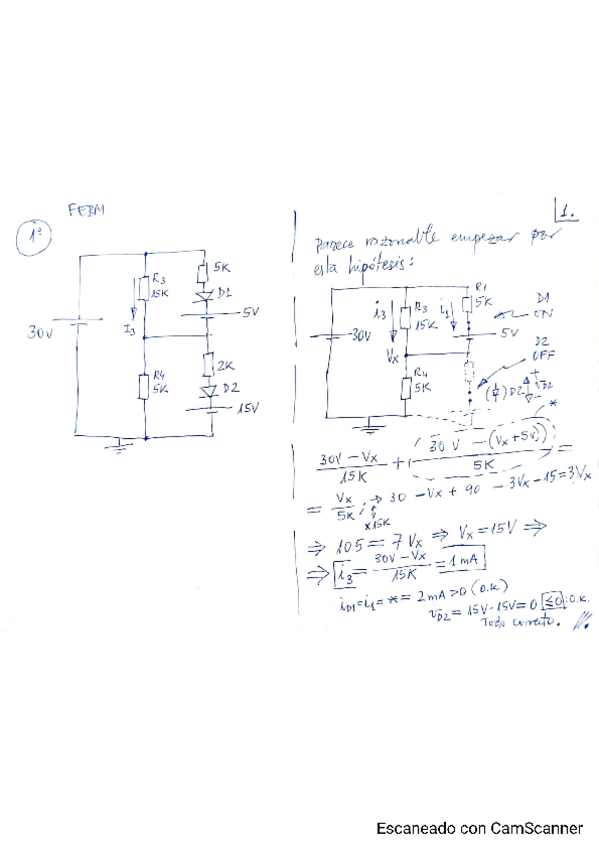 FEBM
1º
5K
R3
15K
D1
5V
I3
30V
R4
5K
2K
D2
15V
1.
Parece razonable empezar por
esta hipótesis:
R1
5K
i3
R3
15K
i1
D1
ON
30V
5V
Vx
D2
OFF
R4
5K
D2
+
VD2
-
*
30V - Vx / 15K + 30V - (Vx + 5V) / 5K =
= Vx / 5K ; → 30 - Vx + 90 - 3Vx - 15 = 3Vx
x15K
⇒ 105 = 7Vx ⇒ Vx = 15V ⇒
⇒ i3 = 30V - Vx / 15K = 1mA
iD1 = i1 = * = 2mA > 0 (O.K.)
VD2 = 15V - 15V = 0 ≤0 : O.K.
Todo correcto.
Escaneado con CamScanner